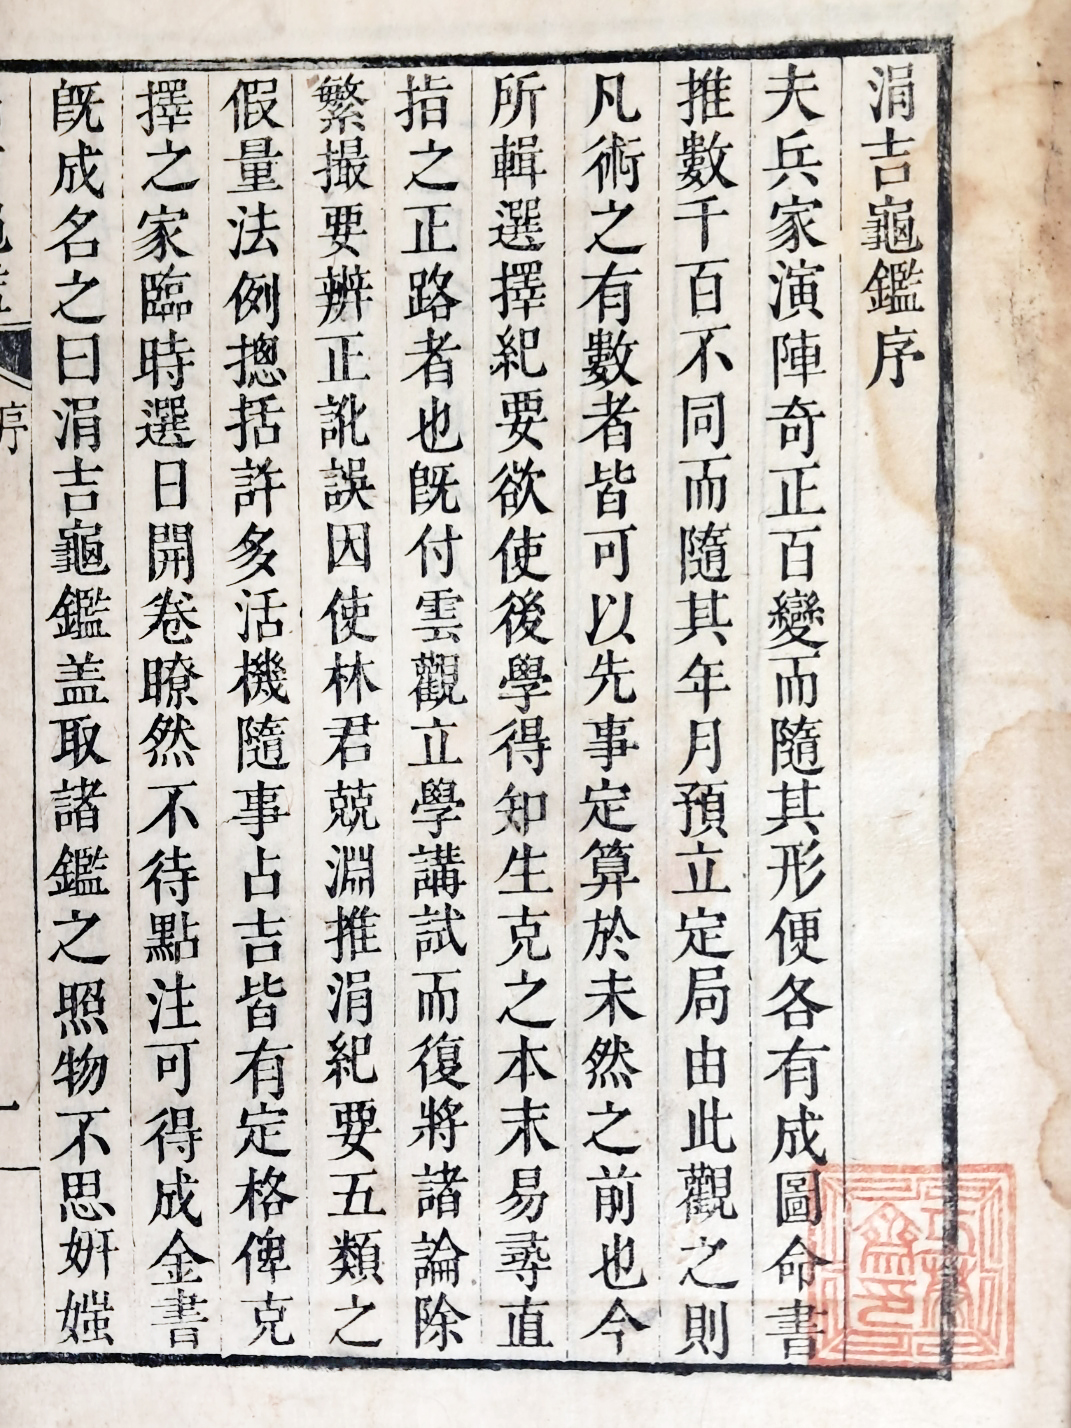 涓吉龜鑑序
夫兵家演陣奇正百變而隨其形便各有成圖命書
推數千百不同而隨其年月預立定局由此觀之則
凡術之有數者皆可以先事定算於未然之前也今
所輯選擇紀要欲使後學得知生克之本末易尋直
指之正路者也旣付雲觀立學講試而復將諸論除
繁撮要辨正訛誤因使林君兢淵推涓紀要五類之
假量法例摠括許多活機隨事占吉皆有定格俾克
擇之家臨時選日開卷瞭然不待點注可得成金書
旣成名之曰涓吉龜鑑盖取諸鑑之照物不思妍媸
序
一